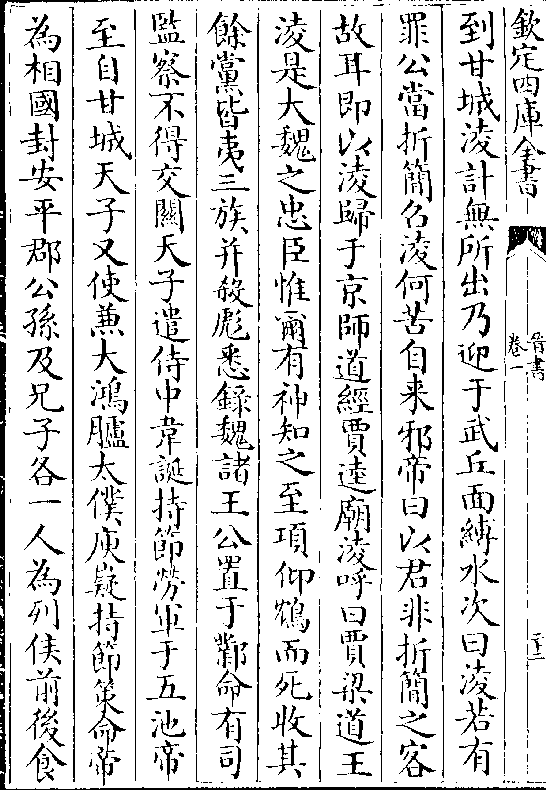 欽定四庫全書
晉書
卷一
到甘城淩計無所出乃迎于武丘面縛水次曰淩若有
罪公當折簡召淩何苦自来邪帝曰以君非折簡之客
故耳即以淩歸于京師道經賈逵廟淩呼曰賈梁道王
淩是大魏之忠臣惟爾有神知之至項仰鴆而死收其
餘黨皆夷三族并殺彪悉錄魏諸王公置于鄴命有司
監察不得交關天子遣侍中韋誕持節勞軍于五池帝
至自甘城天子又使兼大鴻臚太僕庾嶷持節策命帝
為相國封安平郡公孫及兄子各一人為列侯前後食